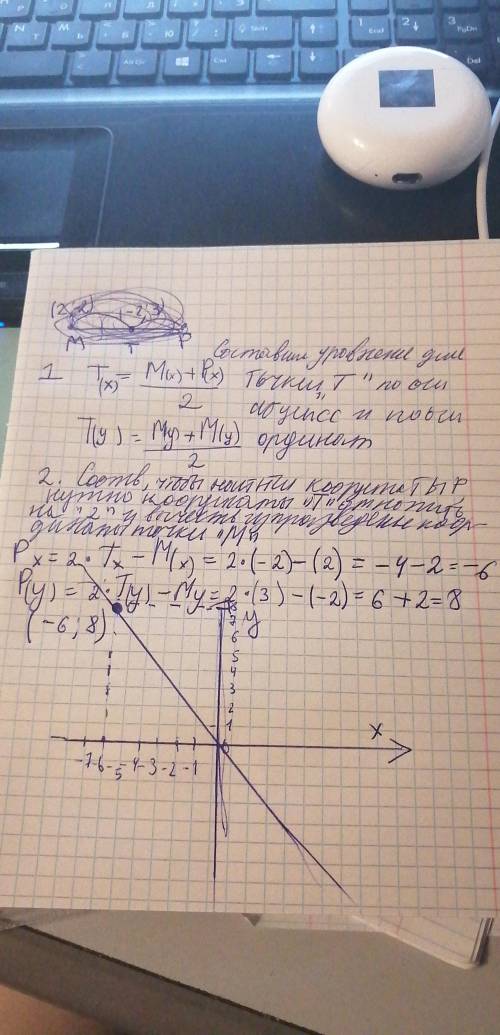 (2; -2) (-2; 3)
M T P
Составим уровнение для
1 T(x) = M(x) + P(x) / 2 точки "T" по оси
абцисс и по оси
T(y) = M(y) + M(y) / 2 ординат
2. Соотв, чтобы найти координаты P
нужно координаты "T"
на "2" и вычесть из произведенье коор-
динаты точки "M"
Px = 2 · Tx - M(x) = 2 · (-2) - (2) = -4 - 2 = -6
P(y) = 2 · T(y) - My = 2 · (3) - (-2) = 6 + 2 = 8
(-6; 8)
8 y
7
6
5
4
3
2
1
x
-7 -6 -5 -4 -3 -2 -1 0